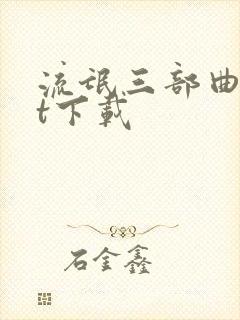 流氓三部曲
t下载
石金鑫